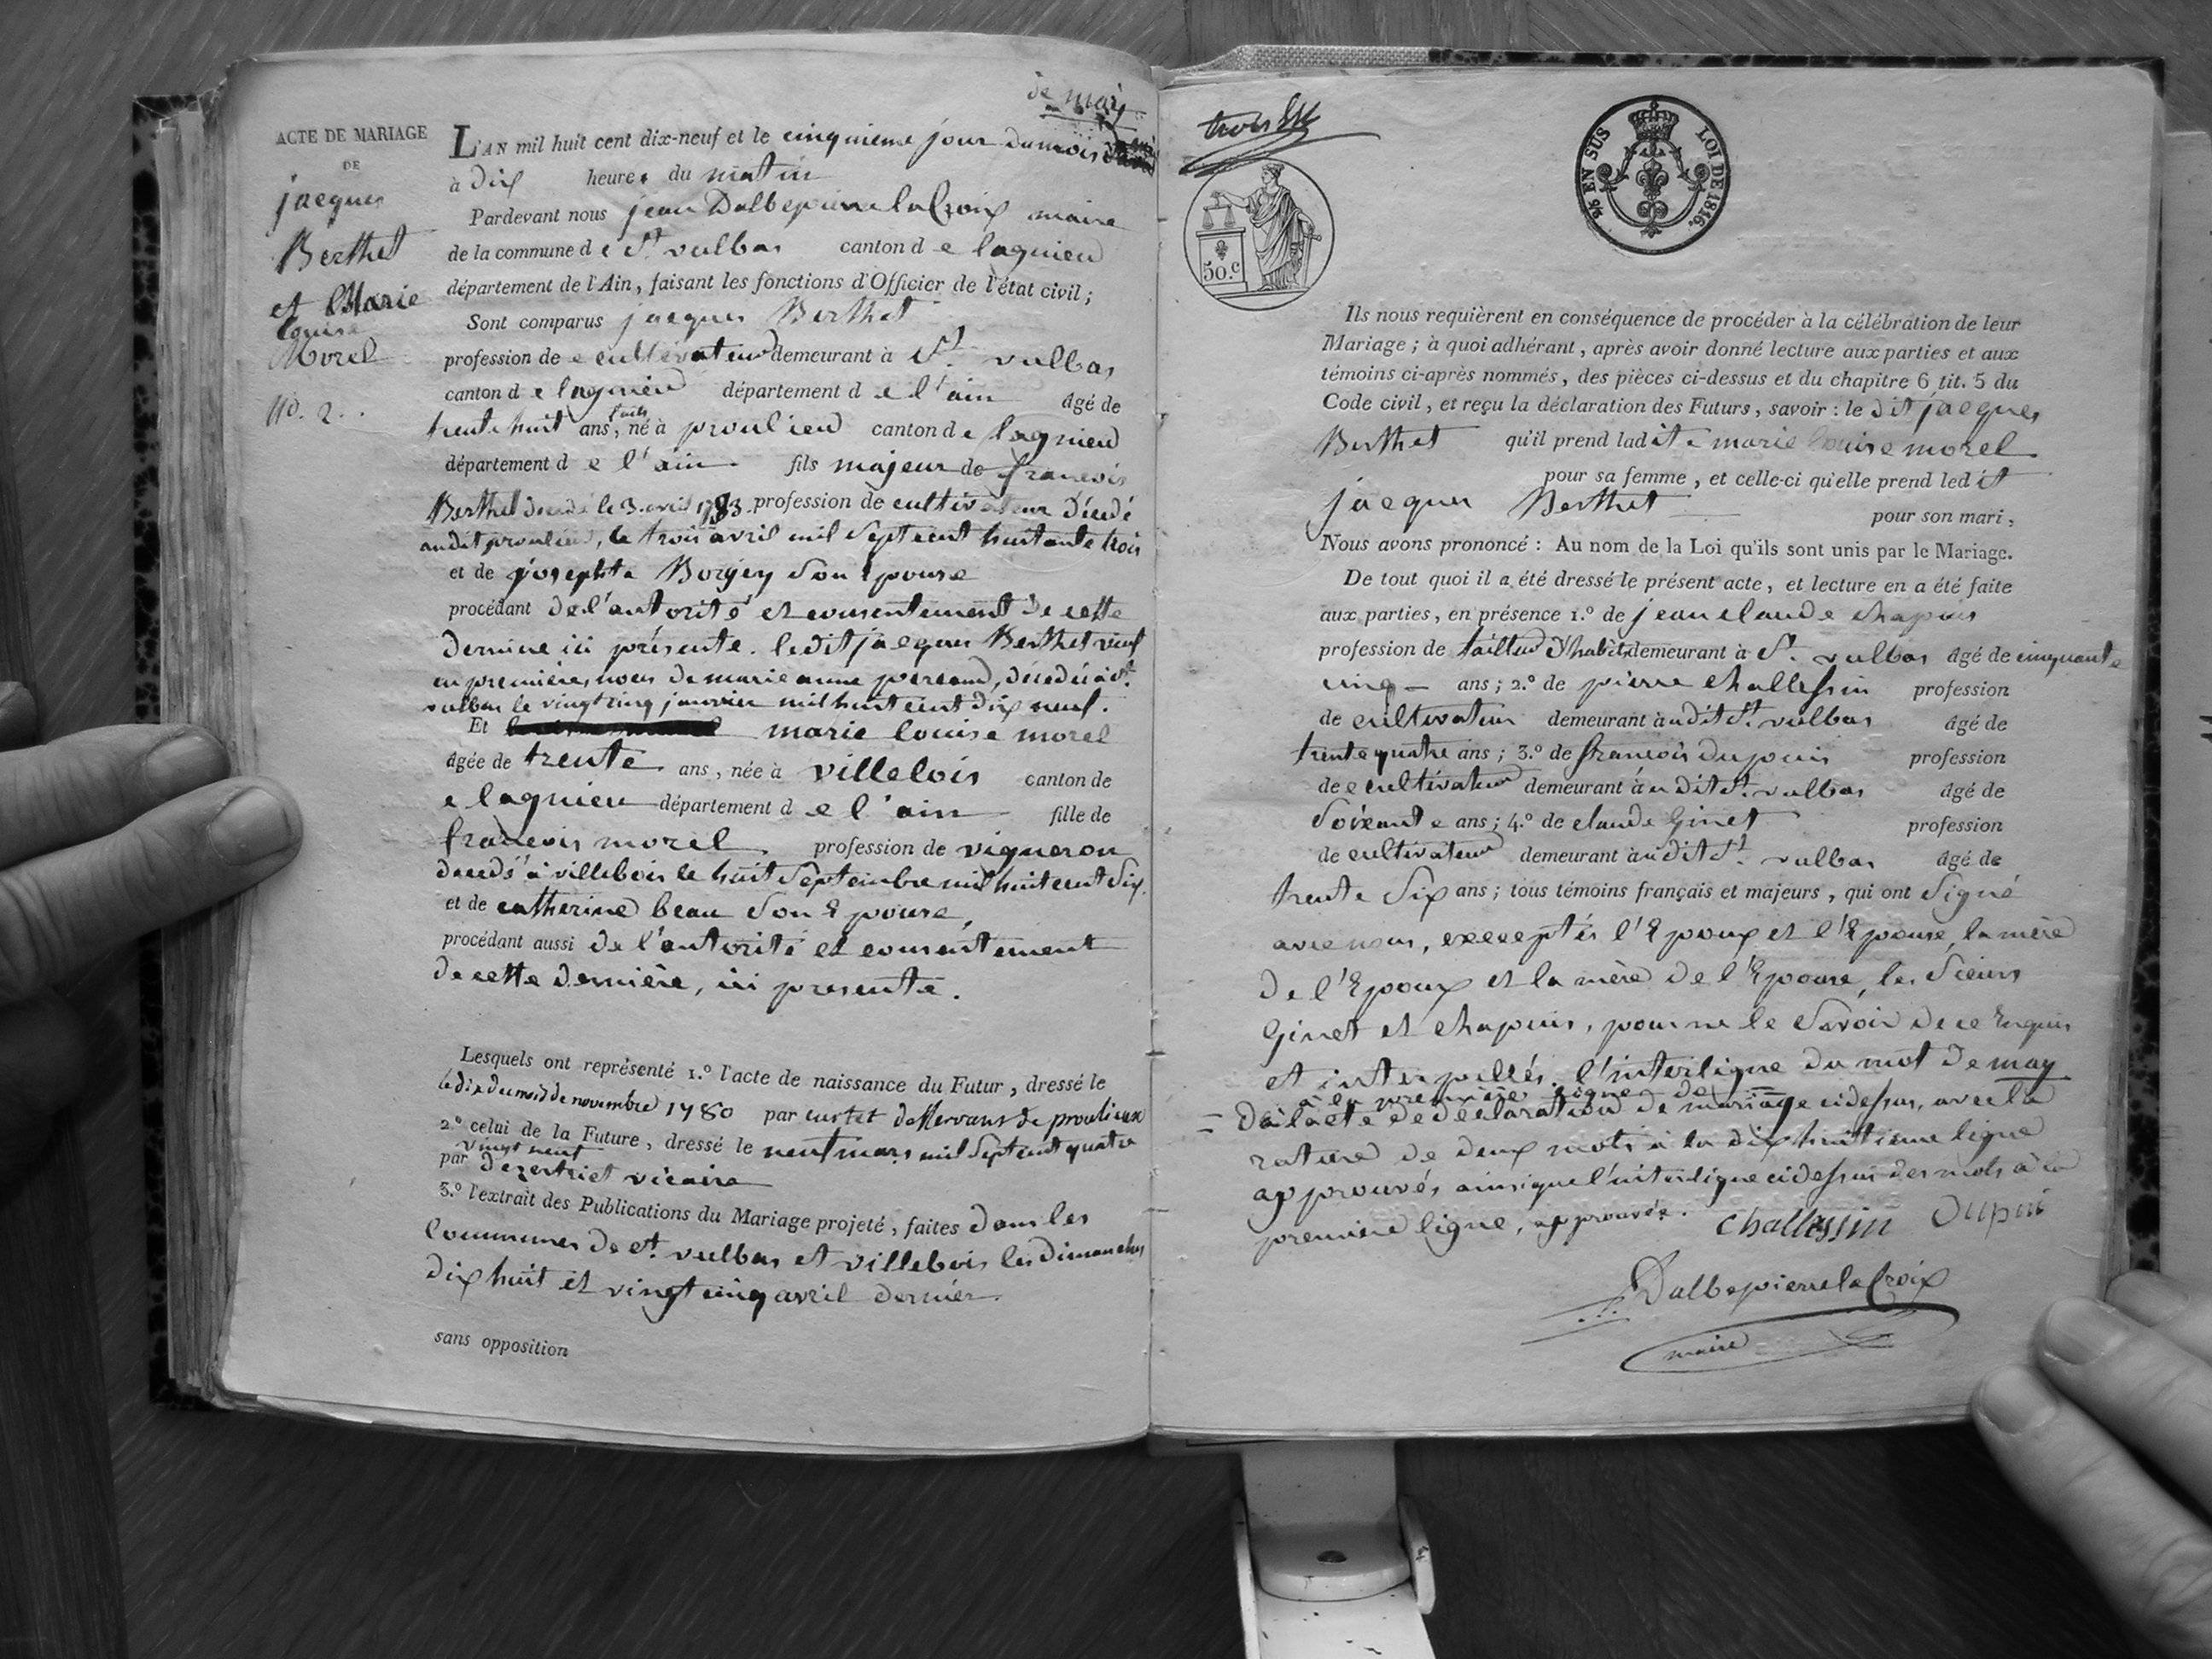 de may
ACTE DE MARIAGE
DE
jacques
Berthet
et Marie
louise
Morel
No. 2.
L'AN mil huit cent dix-neuf et le cinquieme jour du mois
à dix heures du matin
Pardevant nous jean Dalbepierre laCroix maire
de la commune de St. vulbas canton de lagnieu
département de l'Ain, faisant les fonctions d'Officier de l'état civil;
Sont comparus jacques Berthet
profession de cultivateur demeurant à St. vulbas
canton de lagnieu département de l'ain âgé de
trente huit ans, né à proulieu canton de lagnieu
département de l'ain fils majeur de francois
Berthet décédé le 3. avril 1783. profession de cultivateur décédé
audit proulieu, le trois avril mil sept cent huitante trois
et de josephte Borgey son Epouse
procédant de l'autorité et consentement de cette
derniere ici présente. ledit jacques Berthet veuf
en premieres noces de marie anne , décédée à St.
vulbas le vingt cinq janvier mil huit cent dix neuf.
Et marie louise morel
âgée de trente ans, née à villebois canton de
e lagnieu département de l'ain fille de
francois morel profession de vigneron
décédé à villebois le huit Septembre mil huit cent six.
et de catherine beau son Epouse,
procédant aussi de l'autorité et consentement
de cette derniere, ici presente.
Lesquels ont représenté 1.º l'acte de naissance du Futur, dressé le
le dix du mois de novembre 1780 par curtet desservant de proulieux
2.º celui de la Future, dressé le neuf mars mil sept cent quatre
vingt neuf
par vicaire
3.º l'extrait des Publications du Mariage projeté, faites dans les
communes de St. vulbas et villebois les dimanches
dix huit et vingt cinq avril dernier.
sans opposition
trois
50.c
2/5 EN SUS LOI DE 1816.
Ils nous requièrent en conséquence de procéder à la célébration de leur
Mariage; à quoi adhérant, après avoir donné lecture aux parties et aux
témoins ci-après nommés, des pièces ci-dessus et du chapitre 6 tit. 5 du
Code civil, et reçu la déclaration des Futurs, savoir: le dit jacques
Berthet qu'il prend ladite marie louise morel
pour sa femme, et celle-ci qu'elle prend ledit
jacques Berthet pour son mari,
Nous avons prononcé: Au nom de la Loi qu'ils sont unis par le Mariage.
De tout quoi il a été dressé le présent acte, et lecture en a été faite
aux parties, en présence 1.º de jean claude chapuis
profession de tailleur d'habits demeurant à St. vulbas âgé de cinquante
cinq ans; 2.º de pierre challessin profession
de cultivateur demeurant audit St. vulbas âgé de
trente quatre ans; 3.º de francois dupuis profession
de cultivateur demeurant audit St. vulbas âgé de
soixante ans; 4.º de claude Ginet profession
de cultivateur demeurant audit St. vulbas âgé de
trente six ans; tous témoins français et majeurs, qui ont signé
avec nous, exceptés l'Epoux et l'Epouse, la mère
de l'Epoux et la mère de l'Epouse, les sieurs
Ginet et chapuis, pour ne le savoir de ce Enquis
et interpellés. l'interligne du mot de may
à la première ligne de
= de l'acte de déclaration de mariage cidessus, avec la
rature de deux mots à la dix huitieme ligne
approuvés, ainsi que l'interligne cidessus des mots à la
premiere ligne, approuvés. challessin Dupui
Dalbepierre laCroix
maire